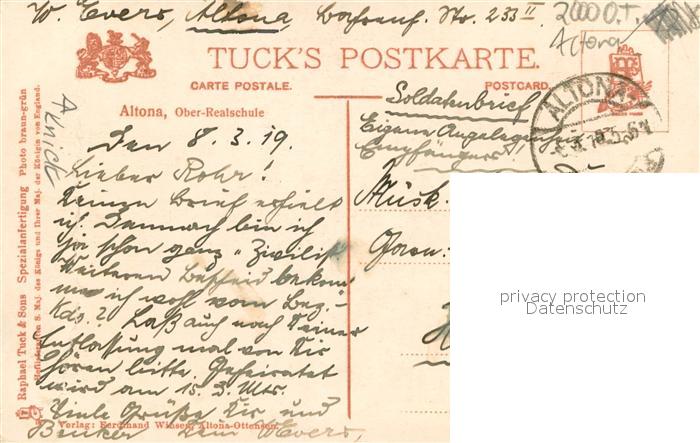 W. Evers, Altona, Bahrenf. Str. 233 II
2000 O.T.
Altona
TUCK'S POSTKARTE.
CARTE POSTALE.
POSTCARD
Altona, Ober-Realschule
Soldatenbrief
Eigene Angelegenheit
Empfängers
ALTONA
Den 8.3.19.
Lieber Rohr!
Deinen Brief erhielt
ich. Demnach bin ich
ja schon ganz „Zivilist"
Weiteren Bescheid bekom
me ich wohl vom Bez.-
Kdo.? Laß auch nach Deiner
Entlassung mal von Dir
hören bitte. Geheiratet
wird am 15.3. Mts.
Viele Grüße Dir und
Dein WEvers,
Musk.
Verlag: Ferdinand Winsen, Altona-Ottensen
Raphael Tuck & Sons Spezialanfertigung Photo braun-grün
Hoflieferanten S. Maj. des Königs und Ihrer Maj. der Königin von England.
privacy protection
Datenschutz